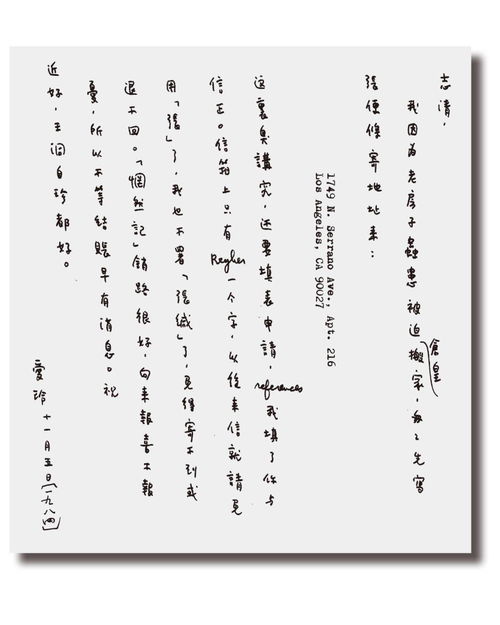 志清,
我因为老房子蟲患被迫倉皇搬家,匆匆先寫
張便條寄地址来:
1749 N. Serrano Ave., Apt. 216
Los Angeles, CA 90027
这裏臭講究,还要填表申請,references 我填了你与
信正。信箱上只有 Reyher 一个字,以後来信就請免
用「張」了,我也不署「張緘」了,免得寄不到或
退不回。「惘然記」銷路很好,向来報喜不報
憂,所以不等結賬早有消息。祝
近好,王洞自珍都好。
愛玲 十一月五日[一九八四]